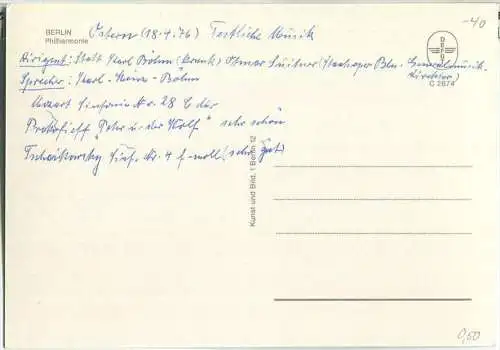 BERLIN
Philharmonie
Ostern (18.4.76) Festliche Musik
-40
DEGRO
Dirigent: Statt Karl Böhm (krank) Otmar Suitner (Staatsoper Bln. Generalmusik-
direktor)
C 2874
Sprecher: Karl-Heinz-Böhm
Mozart Sinfonie Nr. 28 C dur
Prokofieff "Peter u. der Wolf" sehr schön
Tschaikowsky Sinf. Nr. 4 f-moll sehr gut
Kunst und Bild, 1 Berlin 12
0,50